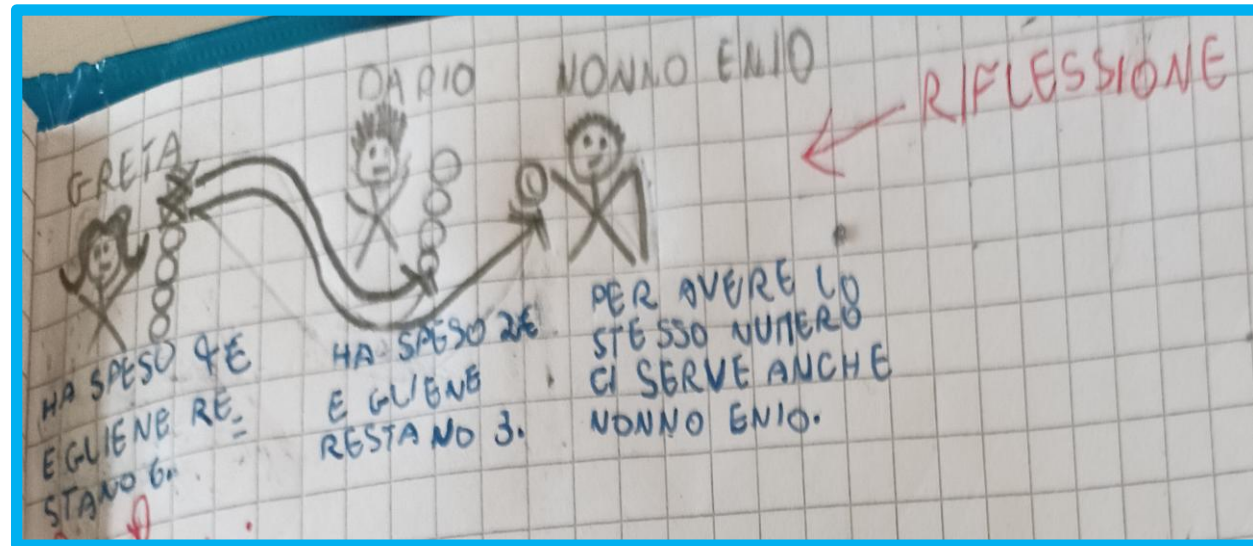 GRETA
DARIO
NONNO ENIO
RIFLESSIONE
HA SPESO 4€
E GLIENE RE_
STANO 6.
HA SPESO 2€
E GLIENE
RESTANO 3.
PER AVERE LO
STESSO NUMERO
CI SERVE ANCHE
NONNO ENIO.